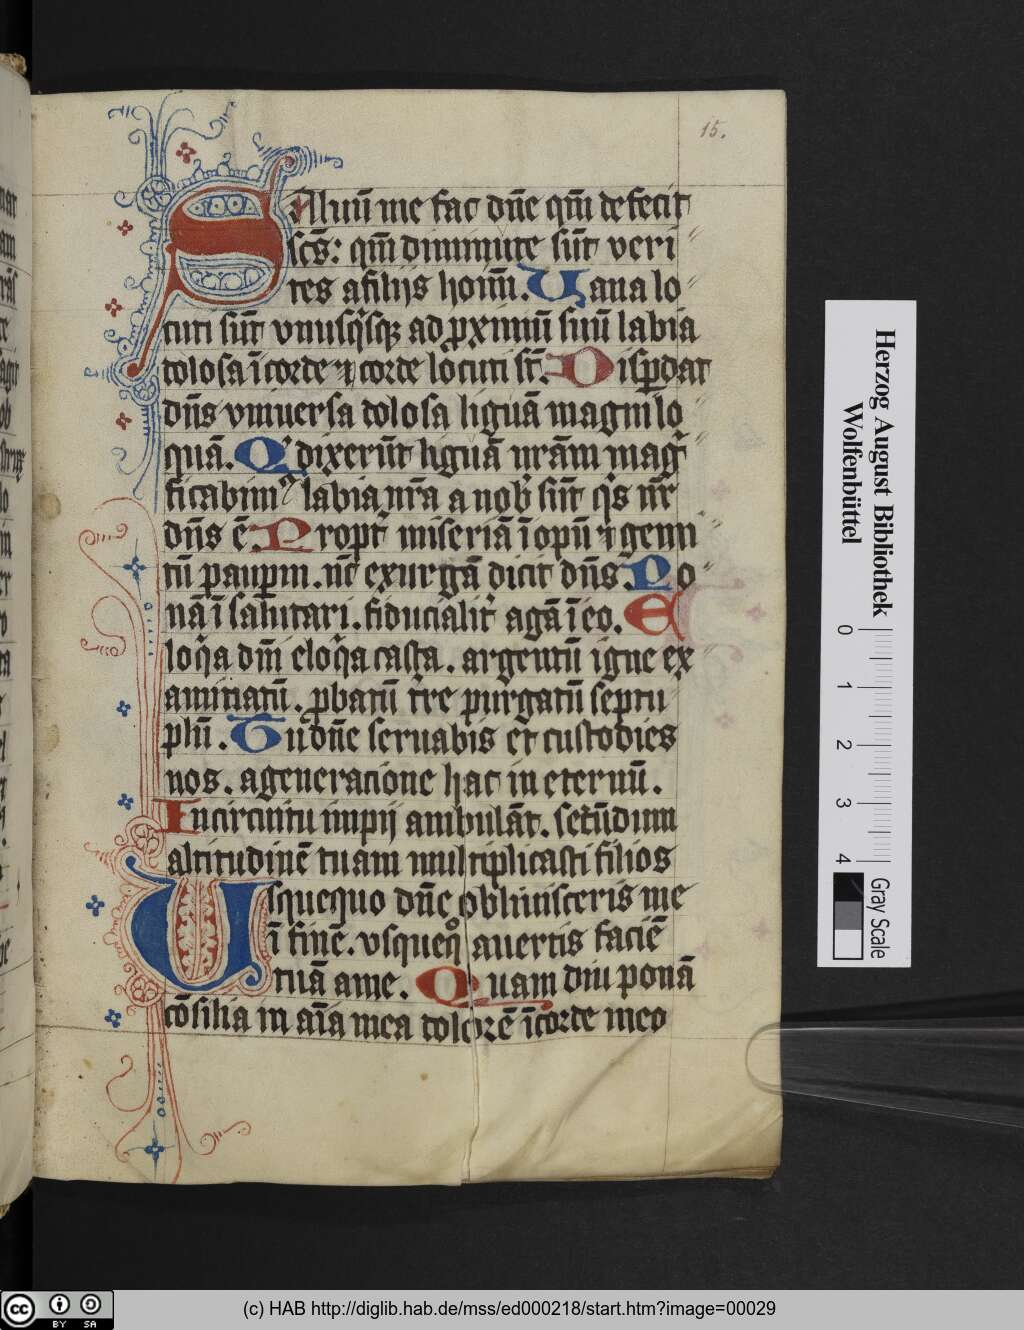 15.
SAluū me fac dn̄e qm̄ defecit
sc̄s: qm̄ diminute sūt veri
tes afilijs hoīm. Uana lo
cuti sūt vnusq̄sq; ad pxımū suū labia
dolosa ī corde ⁊ corde locuti st̄. Dispdat
dn̄s vniuersa dolosa liguā magnilo
quā. Q̇ dixerūt liguā nr̄am magı
ficabimꝰ labia nr̄a a nob̄ sūt q̇s nr̄
dn̄s ē. Propt̄ miseriā īopū ⁊ gemi
tū paupm. nc̄ exurgā dicit dn̄s. Po
nā ī salutari. fiducialit̄ agā ī eo. E
loq̇a dn̄i eloq̇a casta. argentū igne ex
aminatū. pbatū tr̄e purgatū septu
plū. Tu dn̄e seruabis et custodies
nos. a generacione hac in eternū.
Incircuitu impij ambulāt. secūdum
altitudinē tuam multiplicasti filios
Usquequo dn̄e obliuisceris me
ī finē. vsqueq̊ auertis faciē
tuā ame. Quam diu ponā
cōsilia in aīa mea dolorē ī corde meo
Herzog August Bibliothek
Wolfenbüttel
0 1 2 3 4
Gray Scale
cc BY SA
(c) HAB http://diglib.hab.de/mss/ed000218/start.htm?image=00029